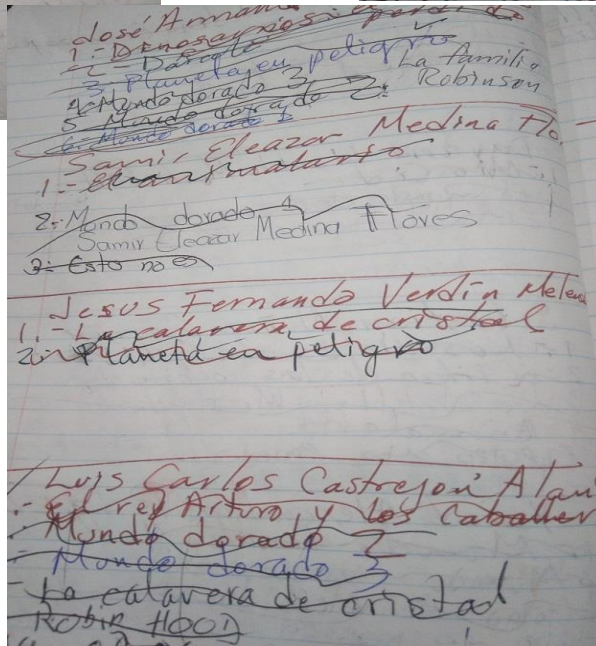 José Arman
1.- Dinosaurios: perdido
2 Rascale
3. Planeta en peligro
La familia
Robinson
4. Mundo dorado 3
5 Mundo dorado 2
6. Mundo dorado 1
Samir Eleazar Medina Flo.
1.-
2.- Mundo dorado 1
Samir Eleazar Medina Flores
3.- Esto no es
Jesus Fernando Verdín Melen
1.- La calavera de cristal
2.- Planeta en peligro
Luis Carlos Castrejon Alan
.- El rey Arturo y los Caballer
.- Mundo dorado 2
- Mundo dorado 3
- La calavera de cristal
Robin Hood